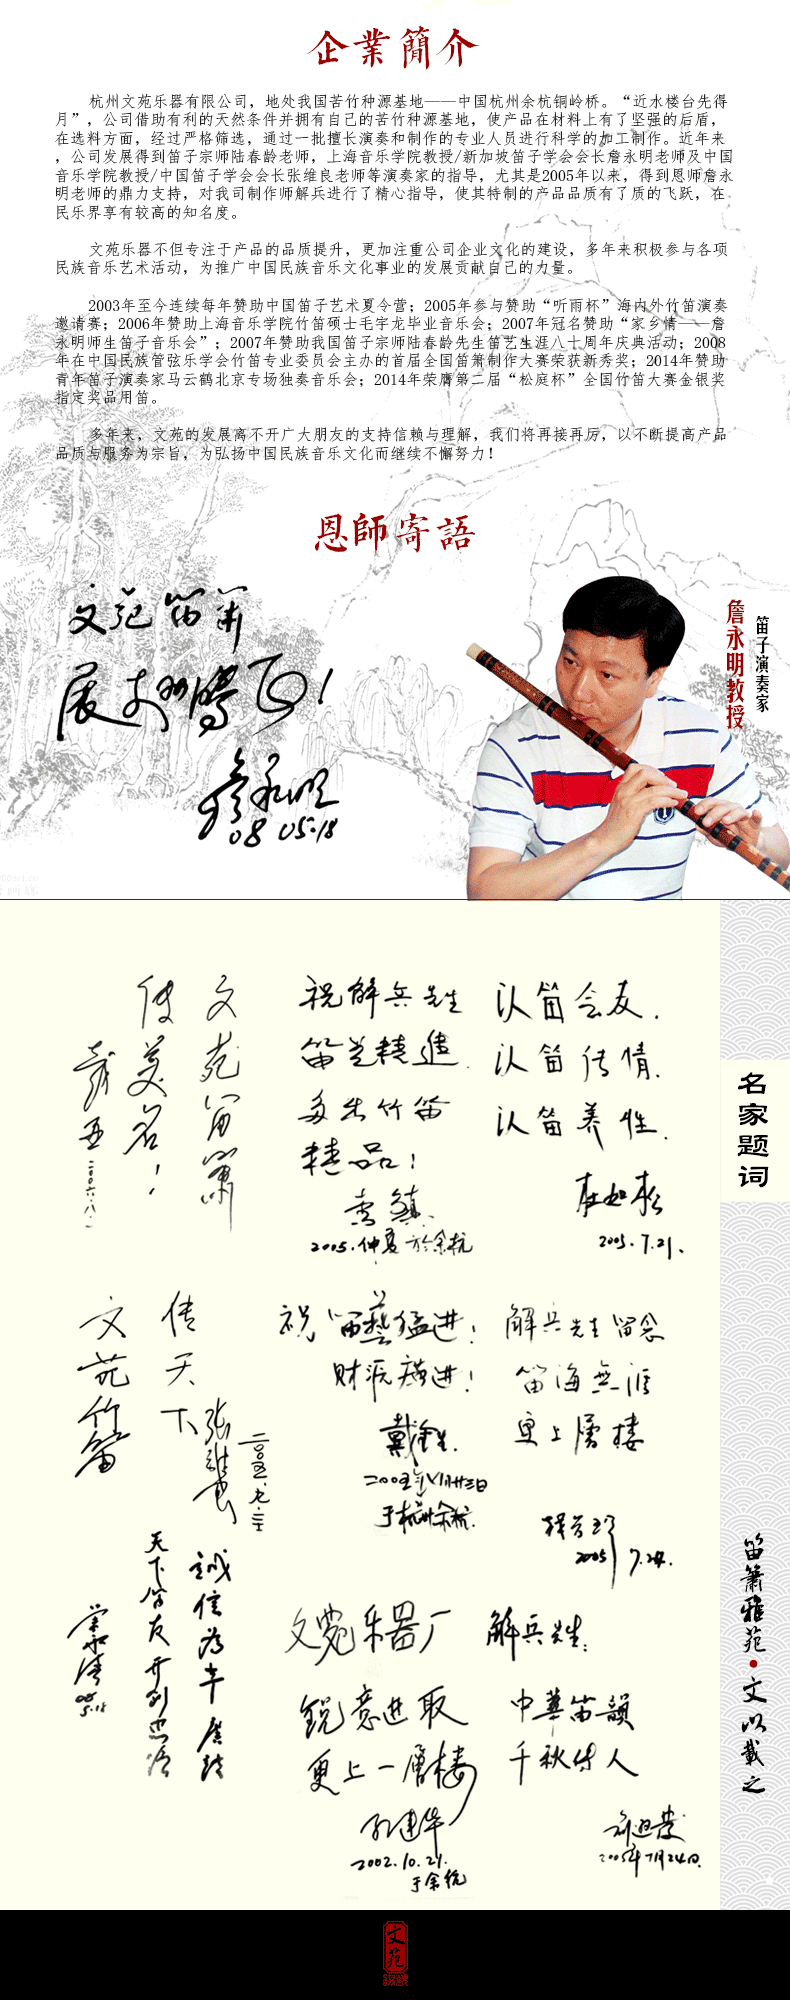 企業簡介
杭州文苑乐器有限公司，地处我国苦竹种源基地——中国杭州余杭铜岭桥。“近水楼台先得
月”，公司借助有利的天然条件并拥有自己的苦竹种源基地，使产品在材料上有了坚强的后盾，
在选料方面，经过严格筛选，通过一批擅长演奏和制作的专业人员进行科学的加工制作。近年来
，公司发展得到笛子宗师陆春龄老师，上海音乐学院教授/新加坡笛子学会会长詹永明老师及中国
音乐学院教授/中国笛子学会会长张维良老师等演奏家的指导，尤其是2005年以来，得到恩师詹永
明老师的鼎力支持，对我司制作师解兵进行了精心指导，使其特制的产品品质有了质的飞跃，在
民乐界享有较高的知名度。
文苑乐器不但专注于产品的品质提升，更加注重公司企业文化的建设，多年来积极参与各项
民族音乐艺术活动，为推广中国民族音乐文化事业的发展贡献自己的力量。
2003年至今连续每年赞助中国笛子艺术夏令营；2005年参与赞助“听雨杯”海内外竹笛演奏
邀请赛；2006年赞助上海音乐学院竹笛硕士毛宇龙毕业音乐会；2007年冠名赞助“家乡情——詹
永明师生笛子音乐会”；2007年赞助我国笛子宗师陆春龄先生笛艺生涯八十周年庆典活动；2008
年在中国民族管弦乐学会竹笛专业委员会主办的首届全国笛箫制作大赛荣获新秀奖；2014年赞助
青年笛子演奏家马云鹤北京专场独奏音乐会；2014年荣膺第二届“松庭杯”全国竹笛大赛金银奖
指定奖品用笛。
多年来，文苑的发展离不开广大朋友的支持信赖与理解，我们将再接再厉，以不断提高产品
品质与服务为宗旨，为弘扬中国民族音乐文化而继续不懈努力！
恩師寄語
文苑笛箫
展翅鹏飞！
詹永明
08 05.18
笛子演奏家
詹永明教授
文苑笛箫
传美名！
二00六.八.一
祝解兵先生
笛艺精进.
多出竹笛
精品！
2005.仲夏于余杭
认笛会友.
认笛传情.
认笛养性.
杜如松
2005.7.21.
名家题词
文苑竹笛
传天下
张维良
二00五.九.三十
祝笛藝猛进！
财源横进！
戴金生
二00五年八月廿三日
于杭州余杭
解兵先生留念
笛海無涯
更上層楼
2005 7.24.
誠信為本
天下笛友
常敬清
08
5.18
文苑乐器厂
锐意进取
更上一層楼
孔建华
2002.10.21.
于余杭
解兵先生：
中華笛韻
千秋传人
2005年7月24日.
笛箫雅苑•文以載之
文苑